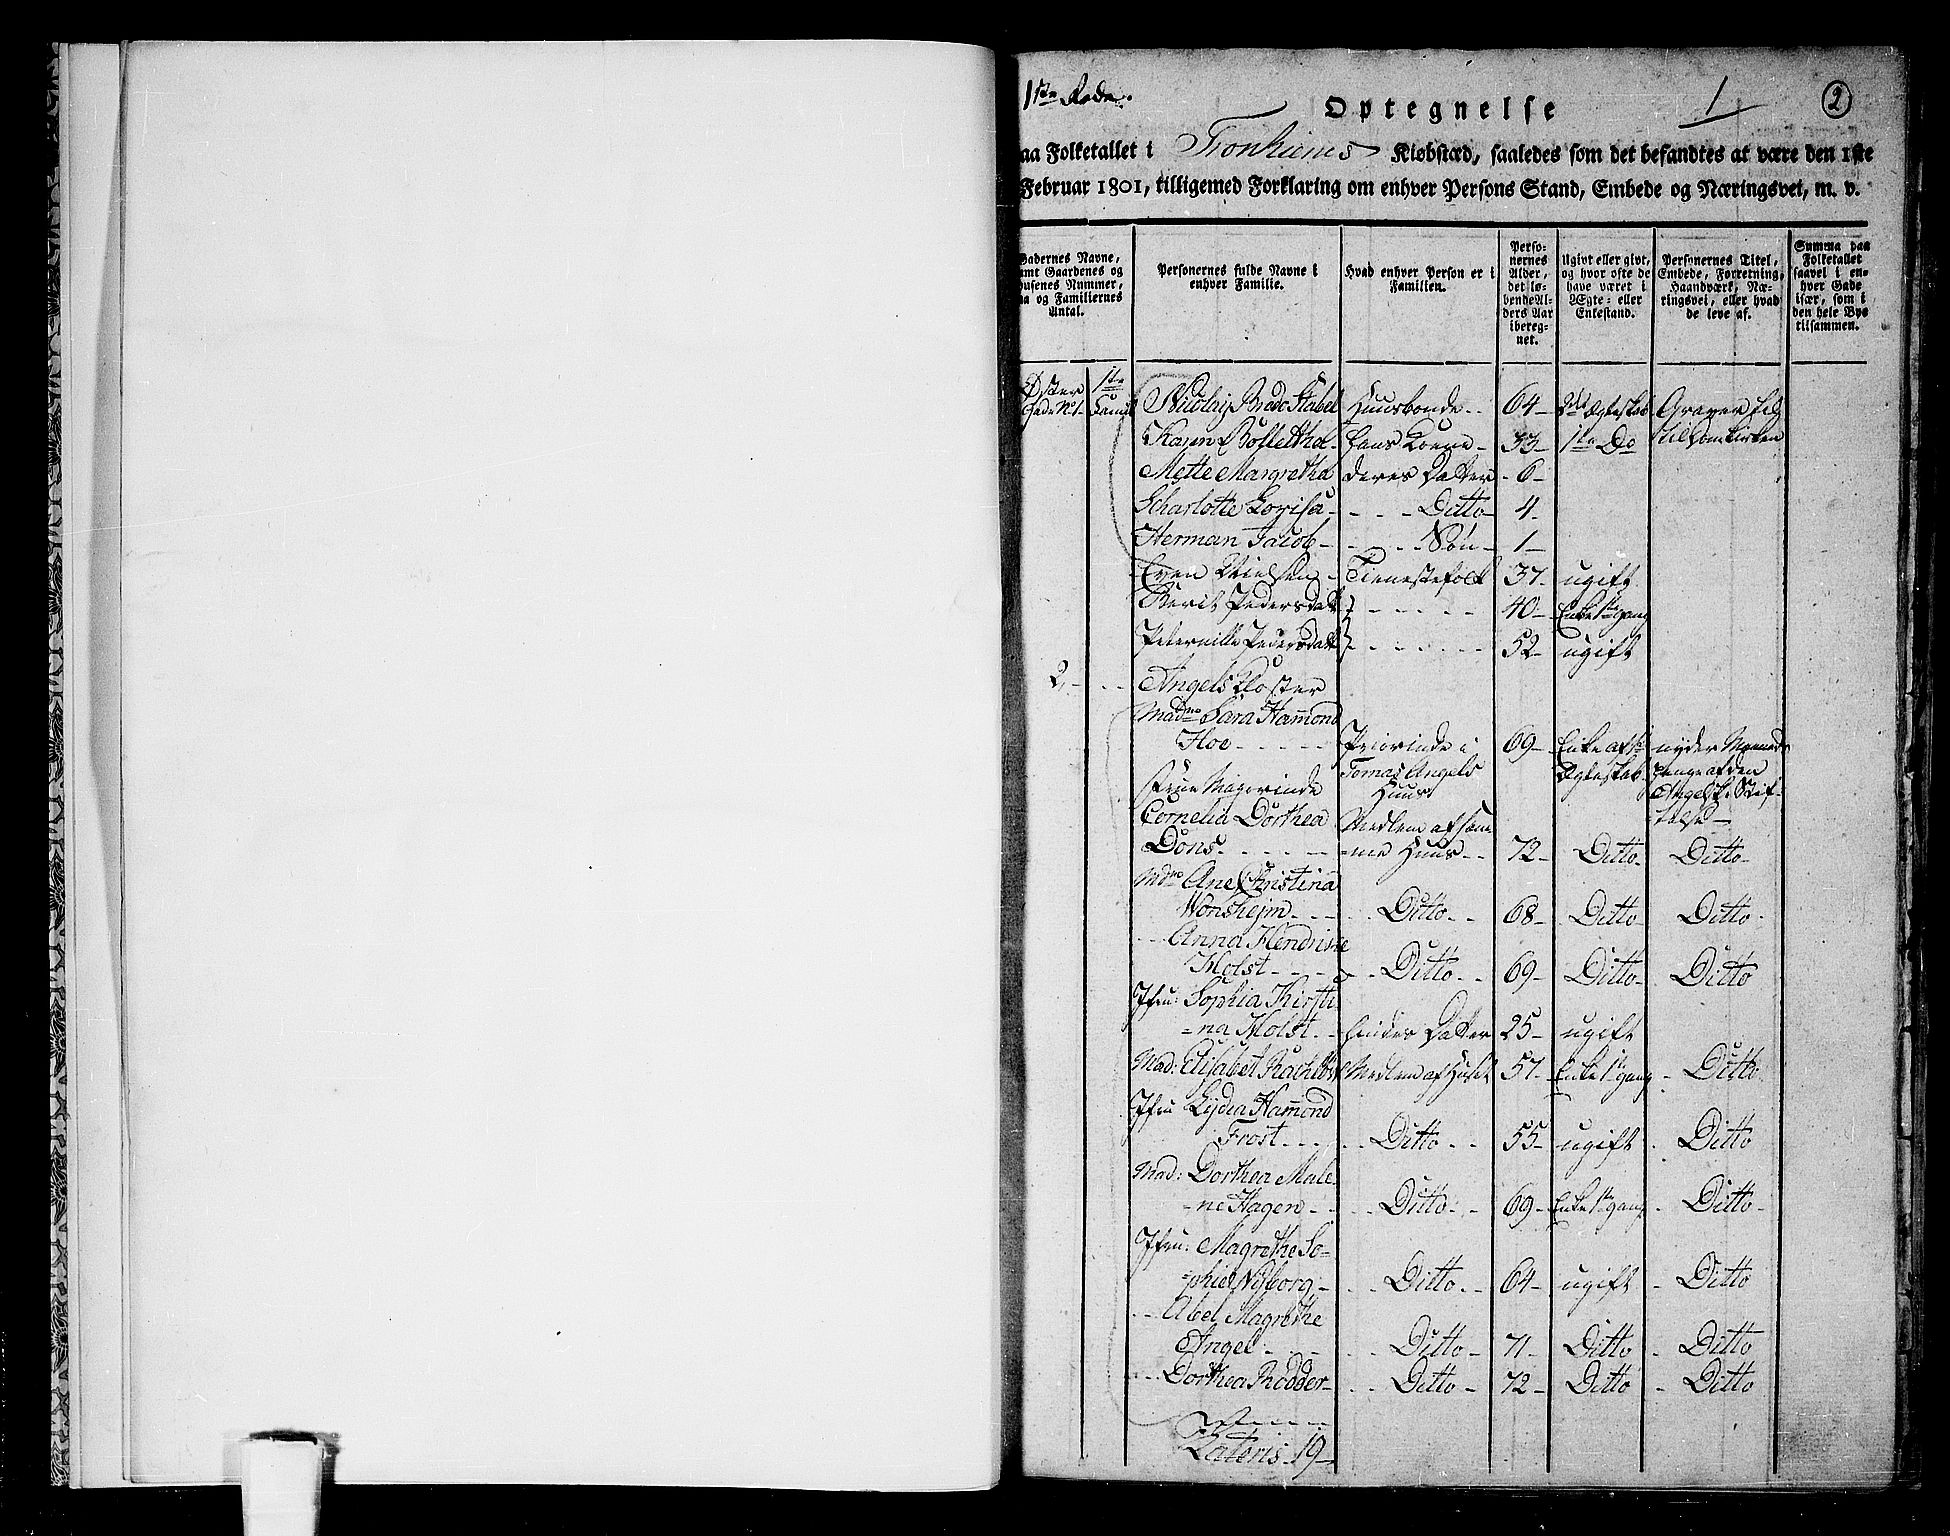 1ste Rode.
1
2
Optegnelse
aa Folketallet i Tronhiems Kiøbstæd, saaledes som det befandtes at være den 1ste
Februar 1801, tilligemed Forklaring om enhver Persons Stand, Embede og Næringsvei, m. v.
Gadernes Navne,
amt Gaardenes og
Husenes Nummer,
aa og Familiernes
Antal.
Personernes fulde Navne i
enhver Familie.
Hvad enhver Person er i
Familien.
Perso-
nernes
Alder,
det lø-
bende Al-
ders Aar
ibereg-
net.
Ugivt eller givt,
og hvor ofte de
have været i
Ægte- eller
Enkestand.
Personernes Titel,
Embede, Forretning,
Haandværk, Næ-
ringsvei, eller hvad
de leve af.
Summa paa
Folketallet
saavel i en-
hver Gade
især, som i
den hele Bye
tilsammen.
Øster 1te
Gade No 1. Famil
Nicolay Brodo Stabel Huusbonde 64 2det Ægteskab Graver
Karen hans Kone 33 1te Do til Domkirken
Mette Margretha deres Datter 6
Scharlotte Lovisa Ditto 4
Herman Jacob Søn 1
Even Nielsen Tienestefolk 37 ugift
Berit Pedersdatt 40 Enke 1te gang
Peternille Pedersdatt 52 ugift
2 Angels Kloster
Madme Sara Hammond
Hoe Priorinde i 69 Enke af 1te nyder Maaneds
Tomas Angels Ægteskab penge af den
Frue Majorinde Huus Angelske Stif-
Cornelia Dorthea Medlem af sam- telse
Dons me Huus 72 Ditto Ditto
Mdme Ane Christina
Wonsheim Ditto 68 Ditto Ditto
Anna Hendrike
Holst Ditto 69 Ditto Ditto
Jfru: Sophia Kirsti-
na Holst hendes Datter 25 ugift
Mad: Elisabet Medlem af Huset 57 Enke 1te gang Ditto
Jfru Lydia Hammond
Frost Ditto 55 ugift Ditto
Mad: Dorthea Male-
ne Hagen Ditto 69 Enke 1te gang Ditto
Jfru: Magrethe So-
phie Nyborg Ditto 64 ugift Ditto
Abel Magrethe
Angel Ditto 71 Ditto Ditto
Dorthea Rødder Ditto 72 Ditto Ditto
Lateris 19